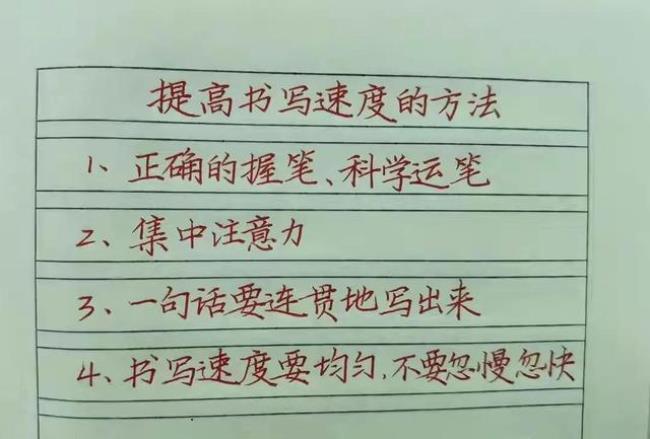 提高书写速度的方法
1、正确的握笔、科学运笔
2、集中注意力
3、一句话要连贯地写出来
4、书写速度要均匀,不要忽慢忽快